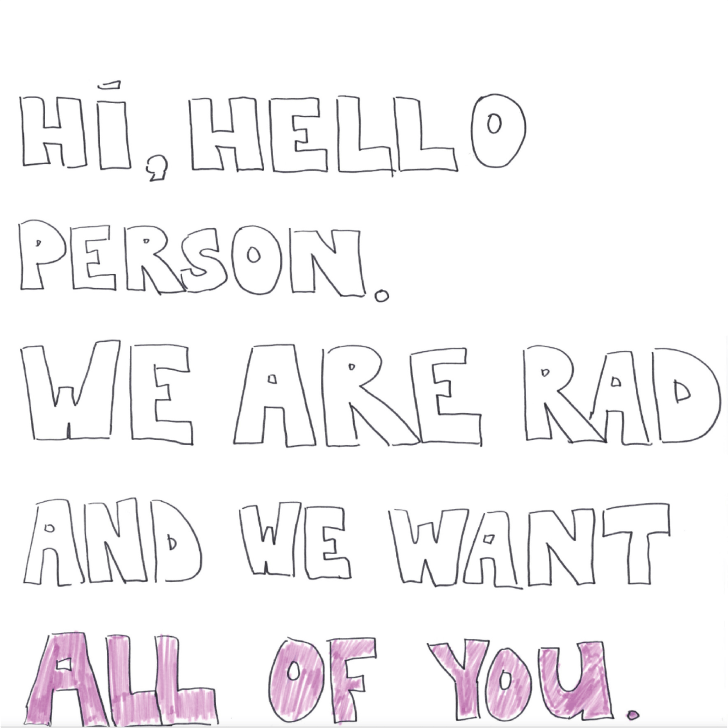 Hi, HELLO
PERSON.
WE ARE RAD
AND WE WANT
ALL OF YOU.